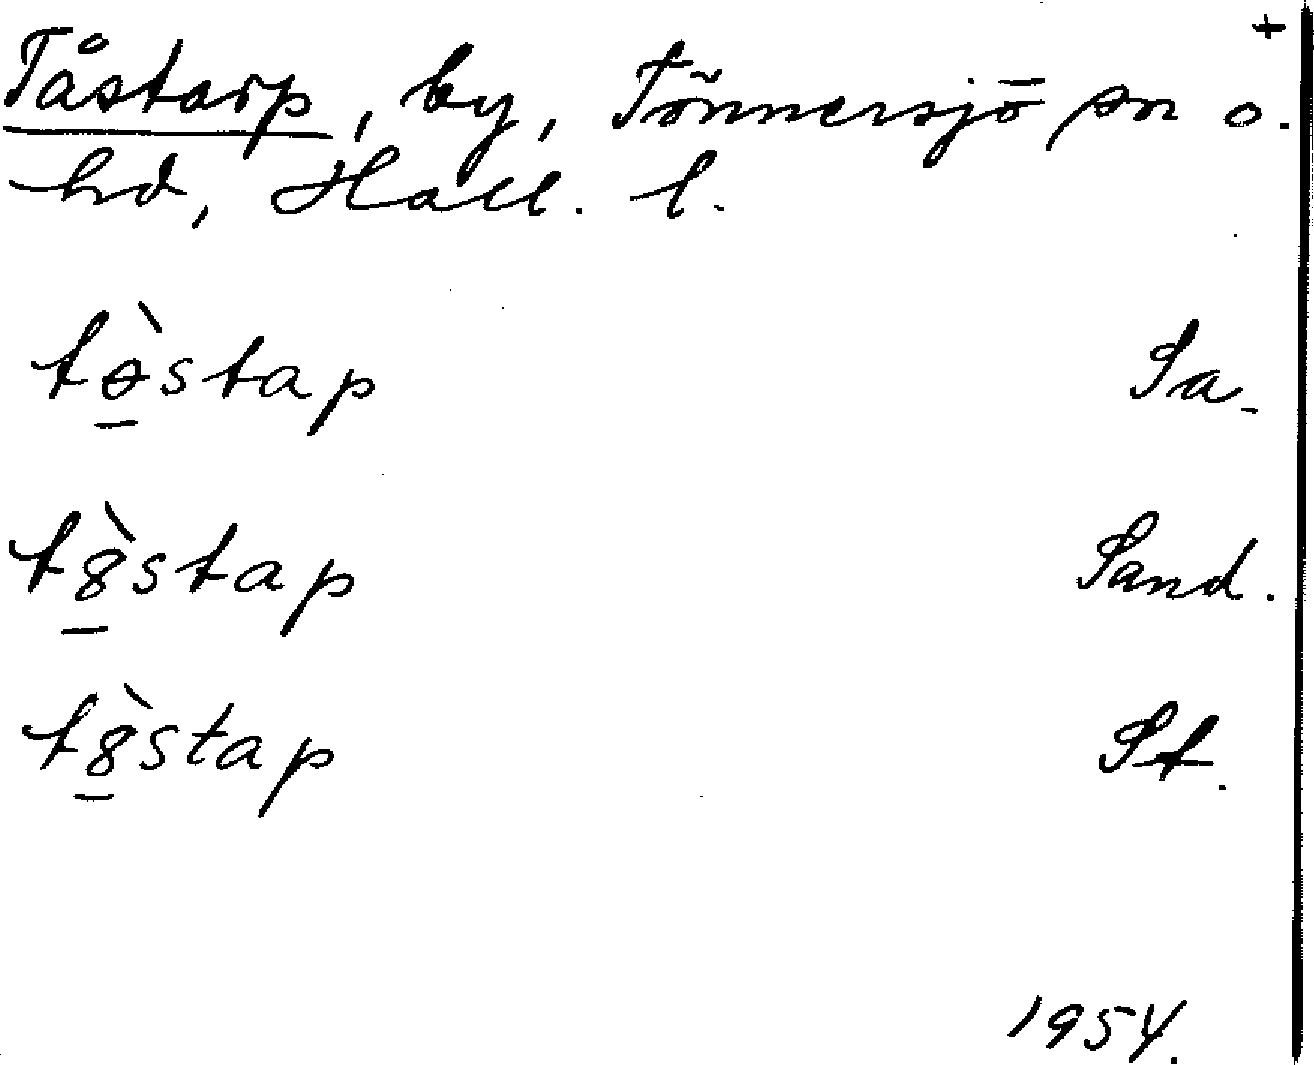 +
Tåstarp, by, Tönnersjö sn o.
hd, Hall. l.
tə̠̀stap Sa.
t8̠̀stap Sand.
t8̠̀stap St.
1954.